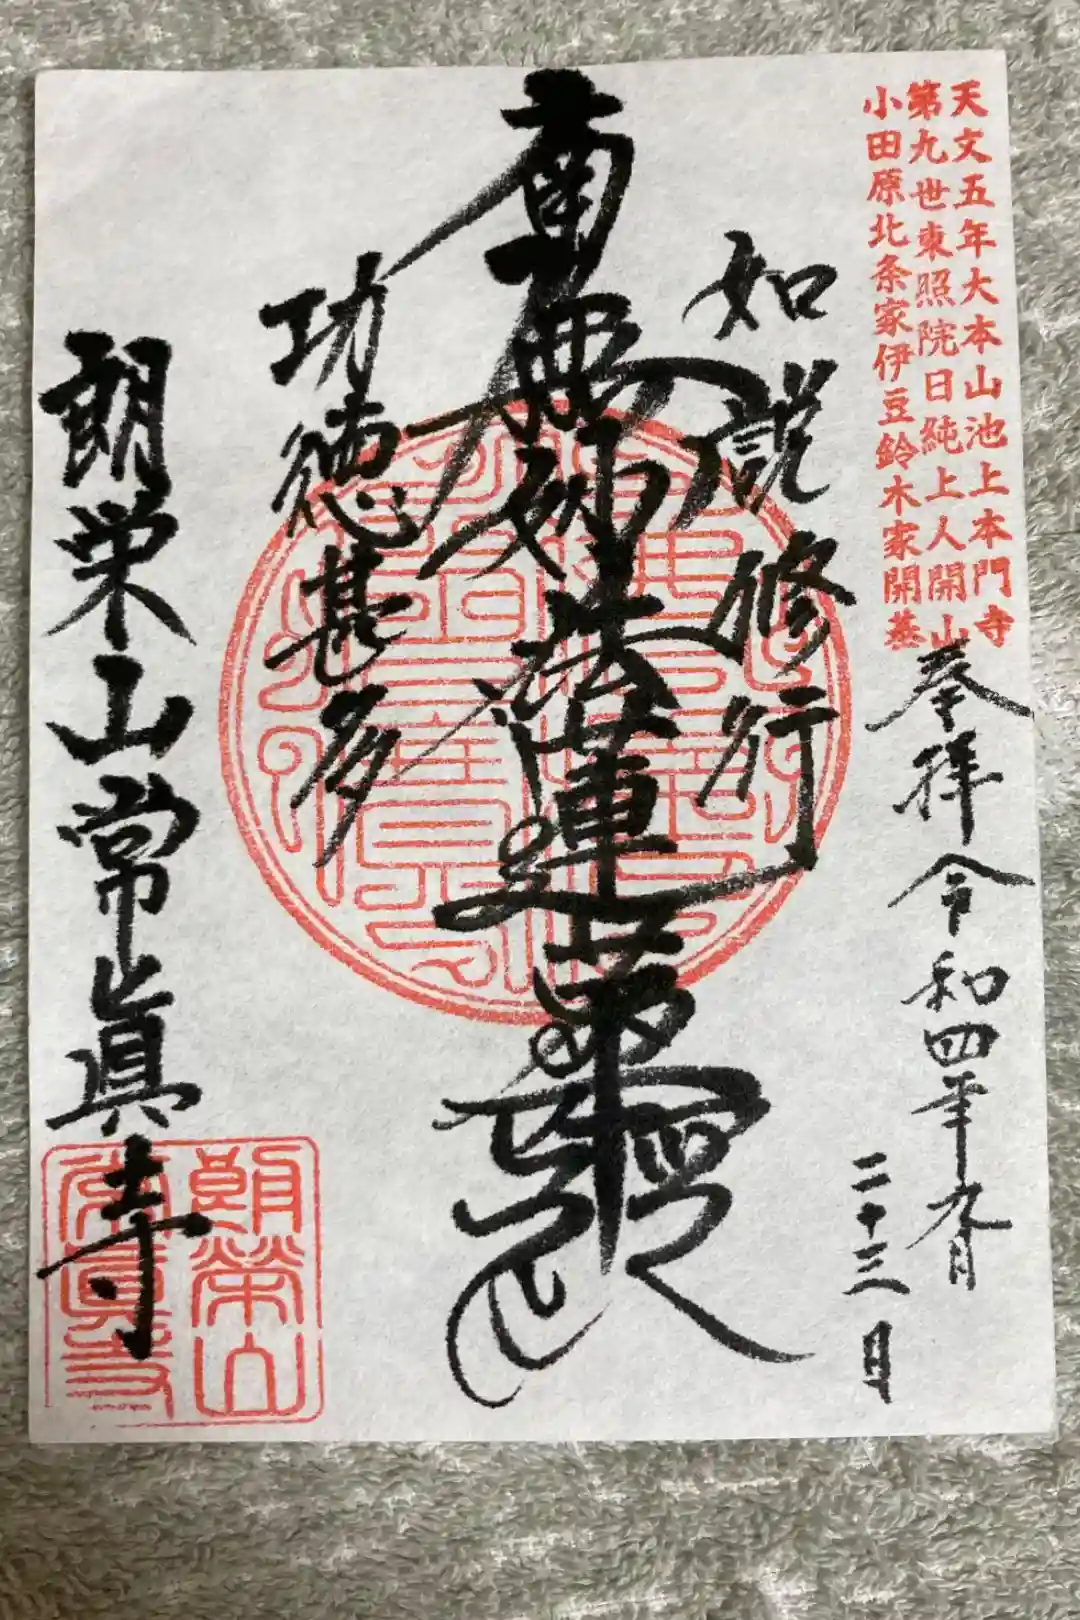 天文五年大本山池上本門寺
第九世東照院日純上人開山
小田原北条家伊豆鈴木家開基
奉拝令和四年九月
二十三日
如説修行
南無妙法蓮華経
功徳甚多
朗栄山常眞寺
朗榮山
常眞寺